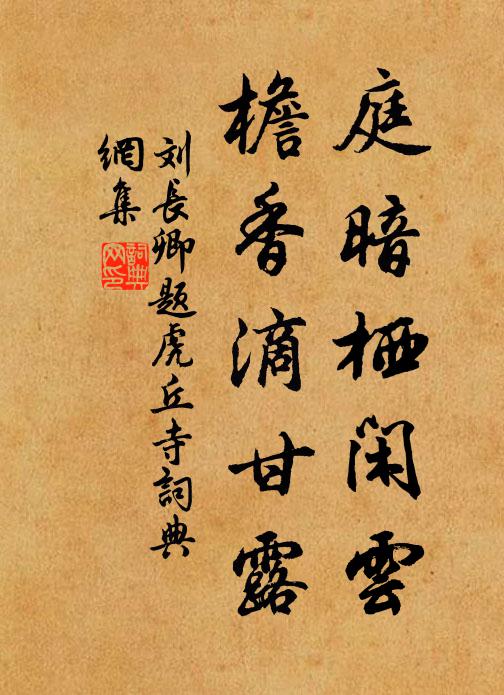 庭暗栖闲雲
檐香滴甘露
刘長卿題虎丘寺詞典
網集
詞典
网印